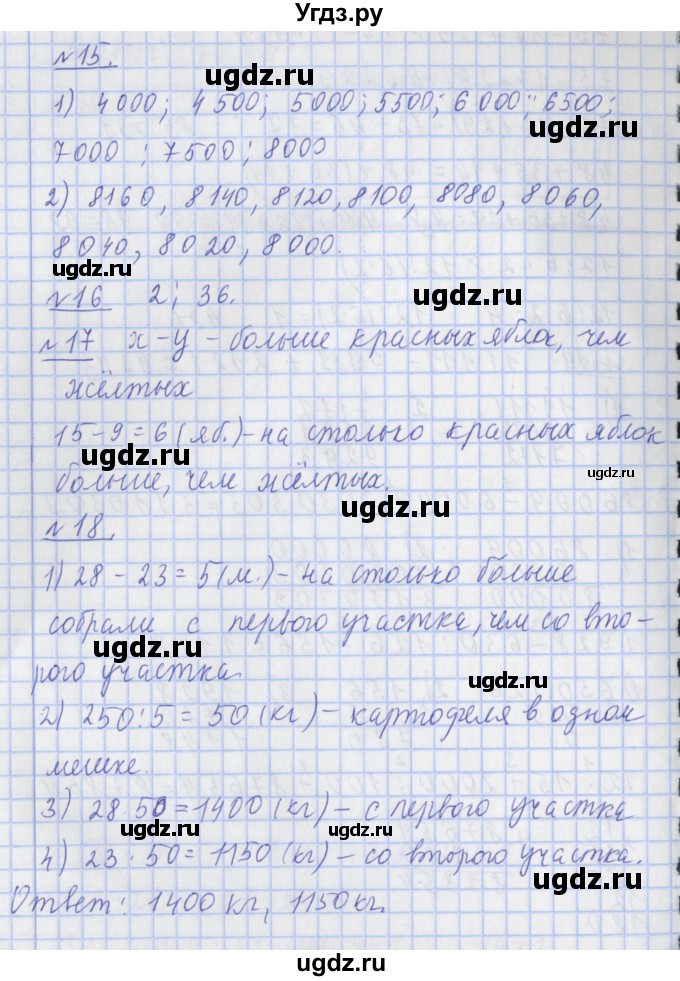 Угдз.ру
№15.
ugdz.ru
1) 4000; 4500; 5000; 5500; 6000; 6500;
ugdz.ru
7000; 7500; 8000
2) 8160, 8140, 8120, 8100, 8080, 8060,
8040, 8020, 8000.
ugdz.ru
№16 2; 36.
ugdz.ru
№17 x-y - больше красных яблок, чем
жёлтых
15-9=6 (яб.)-на столько красных яблок
ugdz.ru
ugdz.ru
больше, чем жёлтых.
ugdz.ru
№18.
1) 28-23=5(м.)-на столько больше
собрали с первого участка, чем со вто-
ugdz.ru
рого участка.
ugdz.ru
2) 250:5=50(кг)-картофеля в одном
мешке.
3) 28·50=1400(кг)-с первого участка
ugdz.ru ugdz.ru
4) 23·50=1150(кг)-со второго участка.
ugdz.ru
Ответ: 1400кг, 1150кг.
ugdz.ru